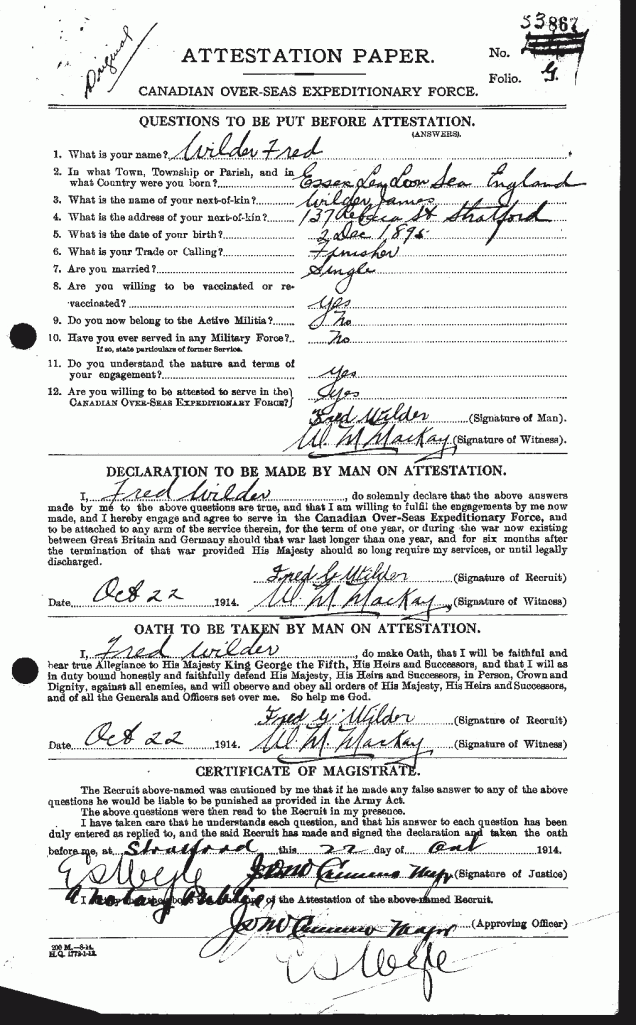 Original
53867
ATTESTATION PAPER.
No.
Folio. G.
CANADIAN OVER-SEAS EXPEDITIONARY FORCE.
QUESTIONS TO BE PUT BEFORE ATTESTATION.
(ANSWERS).
1. What is your name? Wilder Fred
2. In what Town, Township or Parish, and in
what Country were you born? Essex Sea England
3. What is the name of your next-of-kin? Wilder James
4. What is the address of your next-of-kin? 137 St Stratford
5. What is the date of your birth? 2 Dec 1895
6. What is your Trade or Calling? Finisher
7. Are you married? Single
8. Are you willing to be vaccinated or re-
vaccinated? yes
9. Do you now belong to the Active Militia? No
10. Have you ever served in any Military Force? No
If so, state particulars of former Service.
11. Do you understand the nature and terms of
your engagement? yes
12. Are you willing to be attested to serve in the
CANADIAN OVER-SEAS EXPEDITIONARY FORCE? yes
Fred Wilder (Signature of Man).
W. M MacKay (Signature of Witness).
DECLARATION TO BE MADE BY MAN ON ATTESTATION.
I, Fred Wilder, do solemnly declare that the above answers
made by me to the above questions are true, and that I am willing to fulfil the engagements by me now
made, and I hereby engage and agree to serve in the Canadian Over-Seas Expeditionary Force, and
to be attached to any arm of the service therein, for the term of one year, or during the war now existing
between Great Britain and Germany should that war last longer than one year, and for six months after
the termination of that war provided His Majesty should so long require my services, or until legally
discharged.
Fred G Wilder (Signature of Recruit)
Date Oct 22 1914. W. M. MacKay (Signature of Witness)
OATH TO BE TAKEN BY MAN ON ATTESTATION.
I, Fred Wilder, do make Oath, that I will be faithful and
bear true Allegiance to His Majesty King George the Fifth, His Heirs and Successors, and that I will as
in duty bound honestly and faithfully defend His Majesty, His Heirs and Successors, in Person, Crown and
Dignity, against all enemies, and will observe and obey all orders of His Majesty, His Heirs and Successors,
and of all the Generals and Officers set over me. So help me God.
Fred G Wilder (Signature of Recruit)
Date Oct 22 1914. W. M. MacKay (Signature of Witness)
CERTIFICATE OF MAGISTRATE.
The Recruit above-named was cautioned by me that if he made any false answer to any of the above
questions he would be liable to be punished as provided in the Army Act.
The above questions were then read to the Recruit in my presence.
I have taken care that he understands each question, and that his answer to each question has been
duly entered as replied to, and the said Recruit has made and signed the declaration and taken the oath
before me, at Stratford this 22 day of Oct 1914.
Major (Signature of Justice)
A Notary Public
I certify that the above is a true copy of the Attestation of the above-named Recruit.
Major (Approving Officer)
200 M.—8-14.
H.Q. 1772-1-13.